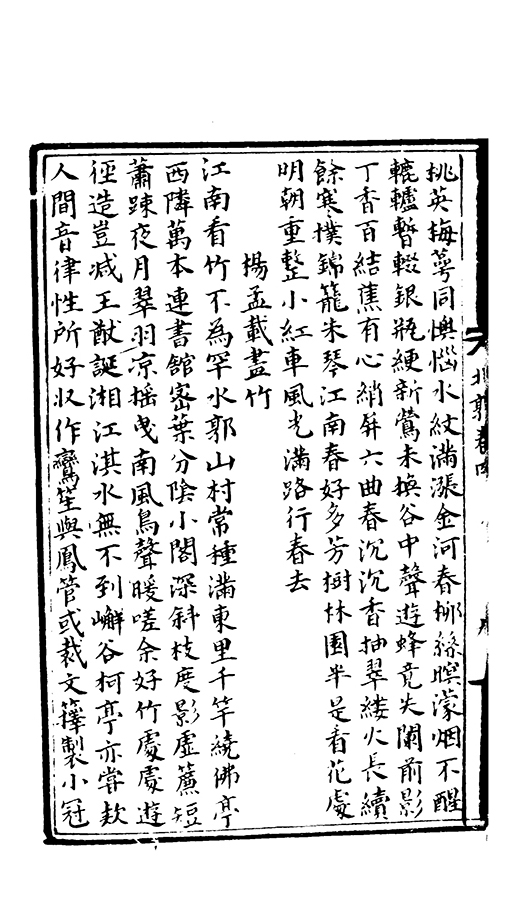 桃英梅萼同懊惱水紋滿漲金河春柳絲暝濛烟不醒
轆轤瞥輟銀瓶綆新鶯未換谷中聲遊蜂竟失闌前影
丁香百結蕉有心綃屏六曲春沉沉香抽翠縷火長續
餘寒撲錦籠朱琴江南春好多芳樹林園半是看花處
明朝重整小紅車風光滿路行春去
楊孟載畫竹
江南看竹不為罕水郭山村常種滿東里千竿繞佛亭
西隣萬本連書舘密葉分陰小閣深斜枝度影虛簷短
蕭踈夜月翠羽凉摇曳南風鳥聲暖嗟余好竹處處遊
徑造豈减王猷誕湘江淇水無不到嶰谷柯亭亦嘗欵
人間音律性所好収作鸞笙與鳳管或裁文籜製小冠
北郭卷四